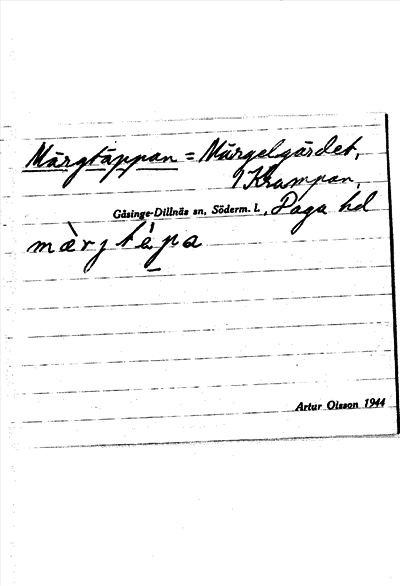 Märgtäppan = Märgelgärdet,
Krampan,
Gåsinge-Dillnäs sn, Söderm. l., Daga hd
Artur Olsson 1944